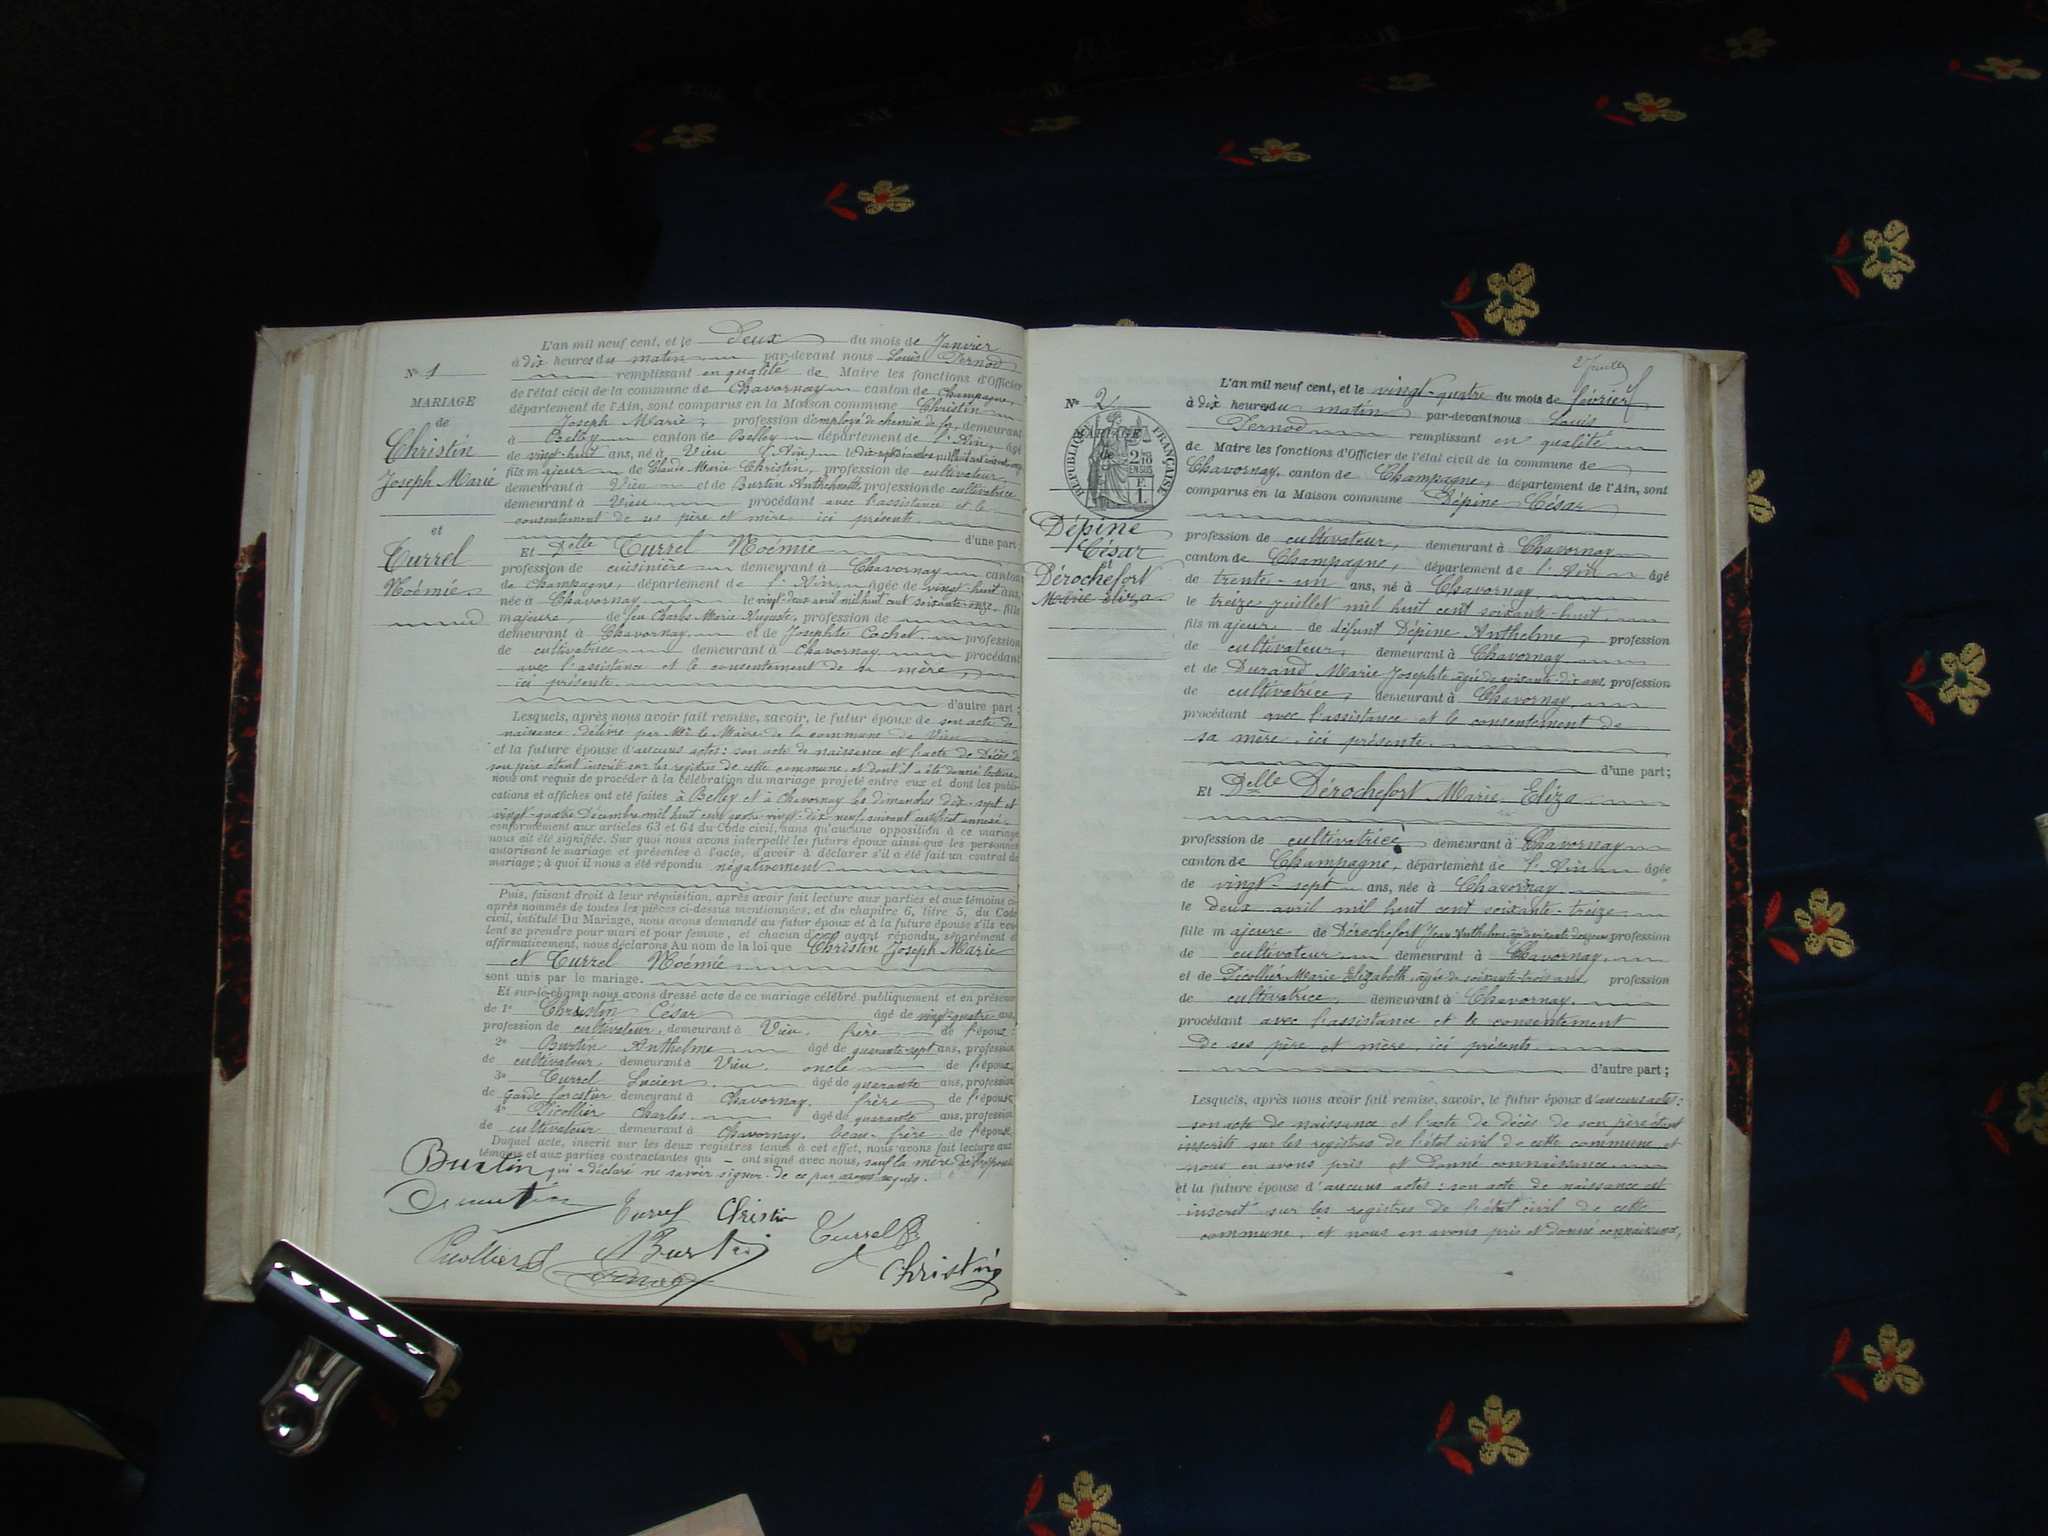 L'an mil neuf cent, et le Deux du mois de Janvier
N° 1
à dix heures du matin par-devant nous Louis Pernod
remplissant en qualité de Maire les fonctions d'Officier
MARIAGE
de l'état civil de la commune de Chavornay canton de Champagne,
de
département de l'Ain, sont comparus en la Maison commune Christin
Christin
Joseph Marie, profession d'employé de chemin de fer, demeurant
Joseph Marie
à Belley canton de Belley département de l'Ain, âgé
de vingt-huit ans, né à Vieu (Ain) le
fils majeur de Claude Marie Christin, profession de cultivateur,
demeurant à Vieu et de Burtin Anthelmette profession de cultivatrice
demeurant à Vieu procédant avec l'assistance et le
consentement de ses père et mère, ici présents.
d'une part;
et
Turrel
Noémie
Et Delle Turrel Noémie
profession de cuisinière demeurant à Chavornay canton
de Champagne, département de l'Ain, âgée de vingt-huit ans,
née à Chavornay le vingt-deux avril mil huit cent soixante-onze, fille
majeure, de feu Charles Marie Auguste, profession de
demeurant à Chavornay et de Josephte Cochet profession
de cultivatrice demeurant à Chavornay procédant
avec l'assistance et le consentement de sa mère,
ici présente.
d'autre part;
Lesquels, après nous avoir fait remise, savoir, le futur époux de son acte de
naissance délivré par Mr le Maire de la commune de Vieu
et la future épouse d'aucuns actes: son acte de naissance et l'acte de décès de
son père étant inscrits sur les registres de cette commune, et dont il a été donné lecture,
nous ont requis de procéder à la célébration du mariage projeté entre eux et dont les publi-
cations et affiches ont été faites à Belley et à Chavornay les dimanches dix-sept et
vingt-quatre Décembre mil huit cent quatre-vingt-dix-neuf, suivant certificat annexé
conformément aux articles 63 et 64 du Code civil, sans qu'aucune opposition à ce mariage
nous ait été signifiée. Sur quoi nous avons interpellé les futurs époux ainsi que les personnes
autorisant le mariage et présentes à l'acte, d'avoir à déclarer s'il a été fait un contrat de
mariage; à quoi il nous a été répondu négativement.
Puis, faisant droit à leur réquisition, après avoir fait lecture aux parties et aux témoins ci-
après nommés de toutes les pièces ci-dessus mentionnées, et du chapitre 6, titre 5, du Code
civil, intitulé Du Mariage, nous avons demandé au futur époux et à la future épouse s'ils veu-
lent se prendre pour mari et pour femme, et chacun d'eux ayant répondu, séparément et
affirmativement, nous déclarons Au nom de la loi que Christin Joseph Marie
et Turrel Noémie
sont unis par le mariage.
Et sur-le-champ nous avons dressé acte de ce mariage célébré publiquement et en présence
de 1° Christin César âgé de vingt-quatre ans,
profession de cultivateur, demeurant à Vieu, frère de l'époux;
2° Burtin Anthelme âgé de quarante-sept ans, profession
de cultivateur, demeurant à Vieu, oncle de l'époux
3° Turrel Lucien, âgé de quarante ans, profession
de garde forestier demeurant à Chavornay, frère de l'épouse
4° Picollier Charles, âgé de quarante ans, profession
de cultivateur demeurant à Chavornay, beau-frère de l'épouse
Duquel acte, inscrit sur les deux registres tenus à cet effet, nous avons fait lecture aux
témoins et aux parties contractantes qui ont signé avec nous, sauf la mère de l'époux
qui a déclaré ne savoir signer de ce par nous requis.
Burtin
Turrel Christin Turrel
Picollier Burtin Christin
Pernod
2 Janvier
L'an mil neuf cent, et le vingt-quatre du mois de février
N° 2
à dix heures du matin par-devant nous Louis
Pernod remplissant en qualité
de Maire les fonctions d'Officier de l'état civil de la commune de
Chavornay, canton de Champagne, département de l'Ain, sont
comparus en la Maison commune Dépine César
RÉPUBLIQUE FRANÇAISE
MARIAGE
de
2/10 EN SUS
F. 1.
Dépine
César
et
Dérochefort
Marie Eliza
profession de cultivateur, demeurant à Chavornay
canton de Champagne, département de l'Ain âgé
de trente-un ans, né à Chavornay
le treize juillet mil huit cent soixante-huit,
fils majeur de défunt Dépine Anthelme, profession
de cultivateur, demeurant à Chavornay
et de Durand Marie Josephte âgée de soixante-dix ans, profession
de cultivatrice, demeurant à Chavornay,
procédant avec l'assistance et le consentement de
sa mère, ici présente.
d'une part;
Et Delle Dérochefort Marie Eliza
profession de cultivatrice demeurant à Chavornay
canton de Champagne, département de l'Ain âgée
de vingt-sept ans, née à Chavornay
le deux avril mil huit cent soixante-treize
fille majeure de Dérochefort Jean Anthelme profession
de cultivateur demeurant à Chavornay,
et de Picollier Marie Elizabeth, âgée de soixante-trois ans, profession
de cultivatrice, demeurant à Chavornay,
procédant avec l'assistance et le consentement
de ses père et mère, ici présents.
d'autre part;
Lesquels, après nous avoir fait remise, savoir, le futur époux d'aucuns actes:
son acte de naissance et l'acte de décès de son père étant
inscrits sur les registres de l'état civil de cette commune et
nous en avons pris et donné connaissance
et la future épouse d'aucuns actes: son acte de naissance est
inscrit sur les registres de l'état civil de cette
commune, et nous en avons pris et donné connaissance,